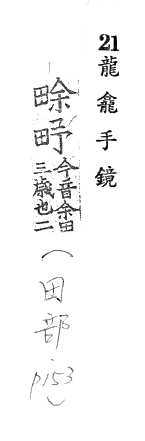 21龍龕手鏡
畭今音余田三歲也二(田部 p153)